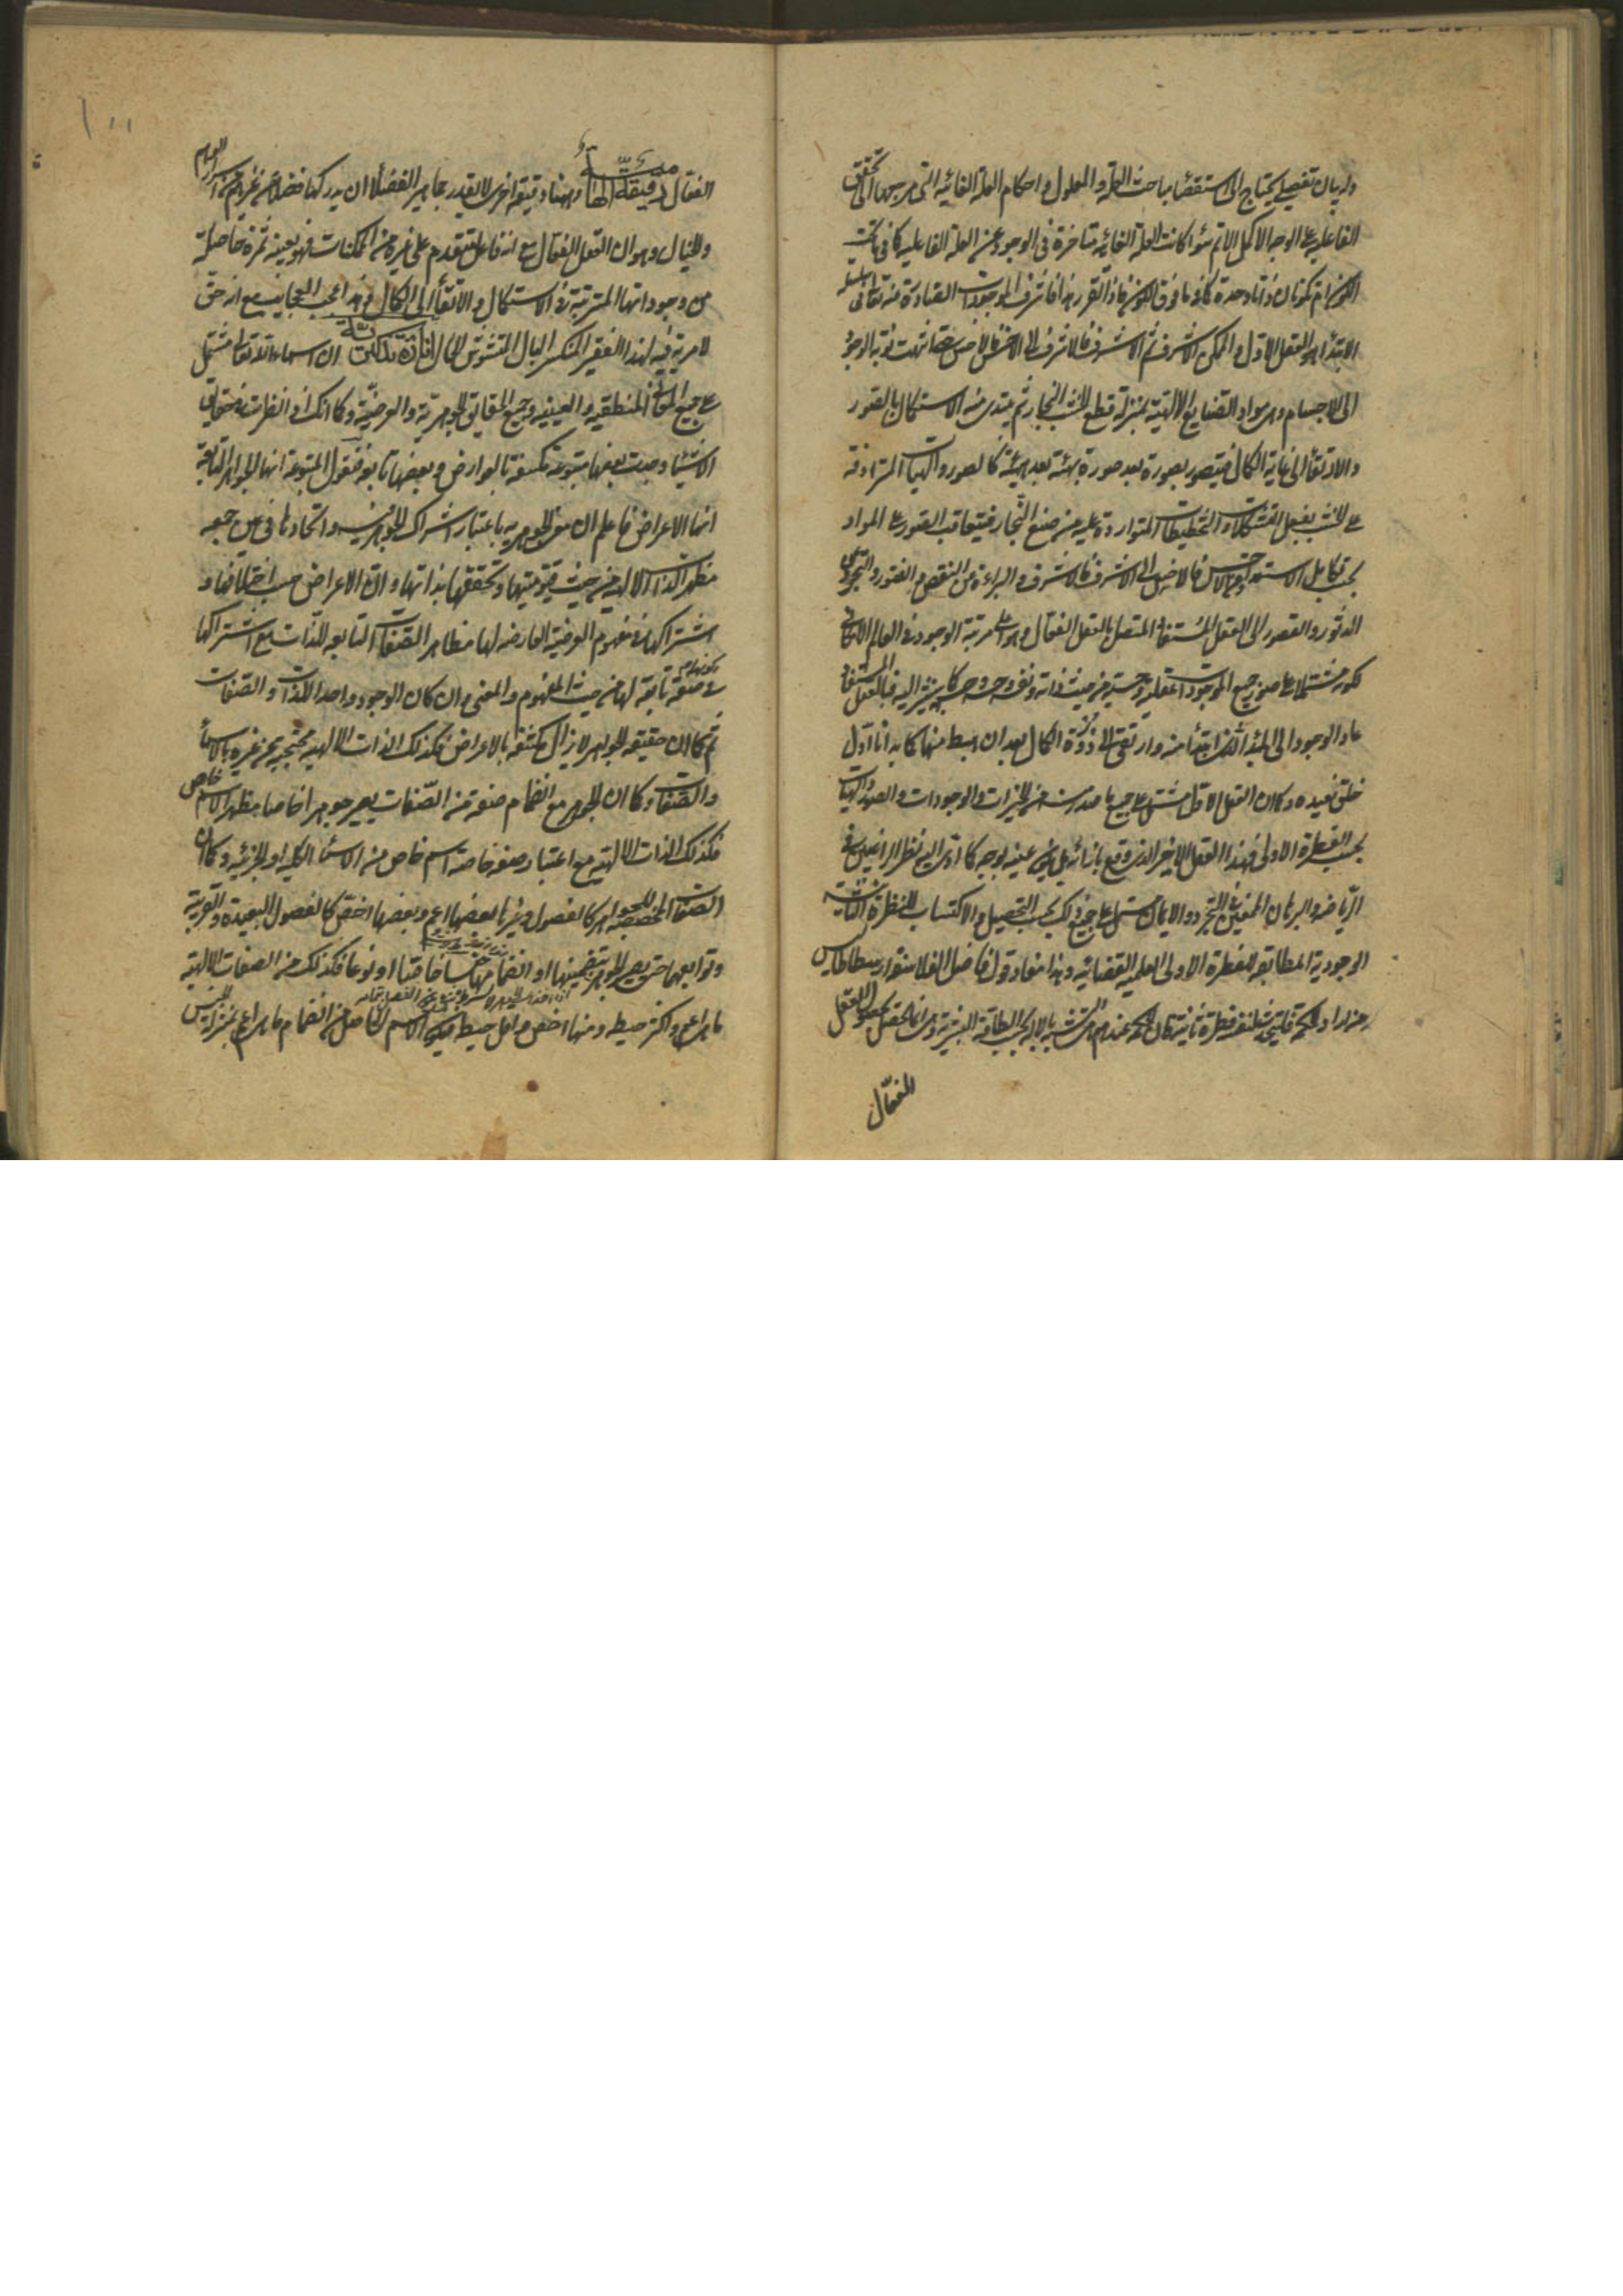 وله بيان تفصيلي يحتاج الى استقصاء مباحث العلة والمعلول واحكام العلة الغائية التي مرجعها الى تحقق
الفاعلية على الوجه الاكمل الاتم سواء كانت العلة الغائية متاخرة في الوجود عن العلة الفاعلية كما في ما تحت
الكون ام تكونان ذاتا واحدة كما في ما فوق الكون فاذا تقرر هذا فاشرف الموجودات الصادرة منه تعالى في سلسلة
الابتداء هو العقل الاول والممكن الاشرف ثم الاشرف فالاشرف الى الاخس فالاخس حتى انتهت نوبة الوجود
الى الاجسام وهي مواد الصنايع الالهية بمنزلة قطع الخشب للنجار ثم يبتدى منه الاستكمال بالصور
والارتقاء الى غاية الكمال فيتصور بصورة بعد صورة بهيئة بعد هيئة كالصور والهيات المترادفة
على الخشب بفعل التشكلات والتخطيطات المتواردة عليه من صنع النجار فيتعاقب الصور على المواد
بحسب تكامل الاستعداد من الاخس فالاخس الى الاشرف فالاشرف والبراءة من النقص والفتور والتجرد عن
الدثور والقصور الى العقل المستفاد المتصل بالعقل الفعال وهو اعلى مرتبة الوجود في العالم الامكاني
لكونه مشتملا على صور جميع الموجودات العقلية والحسية من حيث ذاته ونفسه وحسه كما يشير اليه فبالعقل المستفاد
عاد الوجود الى المبدء الذي ابتدأ منه وارتقى الى ذروة الكمال بعد ان هبط منها كما بدأنا اول
خلق نعيده وكما ان العقل الاول مشتمل على جميع ما صدرت منه من الخيرات والوجودات والصور والهيات
بحسب الفطرة الاولى فهذا العقل الاخير الذي وقع بازائه بل هي عينه بوجه كما ادى اليه نظر الراغبين في
الرياضة والبرهان المعينين في التجرد والايمان مشتمل على جميع ذلك بحسب التحصيل والاكتساب للفطرة الثانية
الوجودية المطابقة للفطرة الاولى العلمية القضائية وهذا مفاد قول فاضل الفلاسفة ارسطاطاليس
من اراد الحكمة فليتحدث لنفسه فطرة ثانية كان الحكمة عندهم هي التشبه بالاله بحسب الطاقة البشرية وهي انما تحصل بحصول العقل
الفعال
الفعال دقيقة الهامية وههنا دقيقة اخرى لا يقدر جماهير الفضلاء ان يدركها فضلا عن غيرهم من اسراء الوهم
والخيال وهو ان العقل الفعال مع انه فاعل متقدم على غيره من الممكنات فهو بعينه ثمرة حاصلة
من وجوداتها المترتبة في الاستكمال والارتقاء الى الكمال وهذا اعجب العجايب مع انه حق
لا مرية فيه لهذا الفقير المنكسر البال المتشوش الحال افادة تذكرية ان اسماء الله تعالى مشتمل
على جميع المعاني المنطقية والعينية وجميع الحقايق الجوهرية والعرضية وكما انك اذا نظرت في حقايق
الاشياء وجدت بعضها متبوعة مكتنفة بالعوارض وبعضها تابعة فتقول المتبوعة انها الجواهر والتابعة
انها الاعراض فاعلم ان معنى الجوهرية باعتبار اشتراك الجواهر فيه واتحادها في عين جمعه
مظهر الذات الالهية من حيث قيوميتها وتحققها بذاتها وان الاعراض حسب اختلافها و
اشتراكها في مفهوم العرضية العارضة لها مظاهر الصفات التابعة للذات مع اشتراكها
في كونها صفة تابعة لها من حيث المفهوم والمعنى وان كان الوجود واحدا للذات والصفات
ثم كما ان حقيقة الجواهر لا يزال مكتنفة بالاعراض فكذلك الذات الالهية محتجبة عن غيره بالاسماء
والصفات وكما ان الجوهر مع انضمام صفة من الصفات يصير جوهرا خاصا مظهر الاسم خاص
فكذلك الذات الالهية مع اعتبار صفة خاصة اسم خاص من الاسماء الكلية او الجزئية وكما ان
الصفات المخصصة للجواهر كالفصول وغيرها بعضها اعم وبعضها اخص كالفصول البعيدة والقريبة
وتوابعهما حتى يصير الجوهر بتضمنها او انضمامها جنسا خاصا او نوعا فكذلك من الصفات الالهية
ما هي اعم واكثر حيطة ومنها اخص واقل حيطة فيكون الاسم الحاصل من انضمام ما هي اعم بمنزلة الجنس